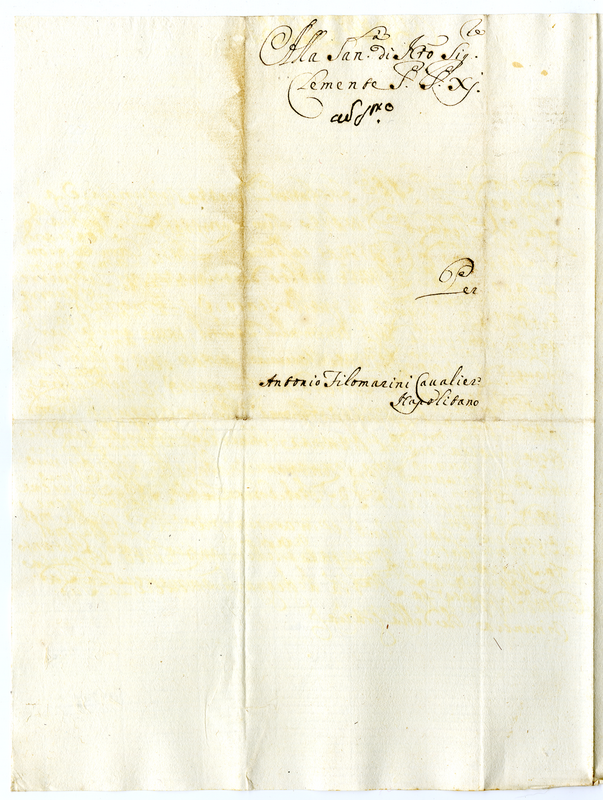 Alla San.tà di Nro Sig.re
Clemente P. P. XI.
Per
Antonio Filomarini Cavalier.e
Napolitano